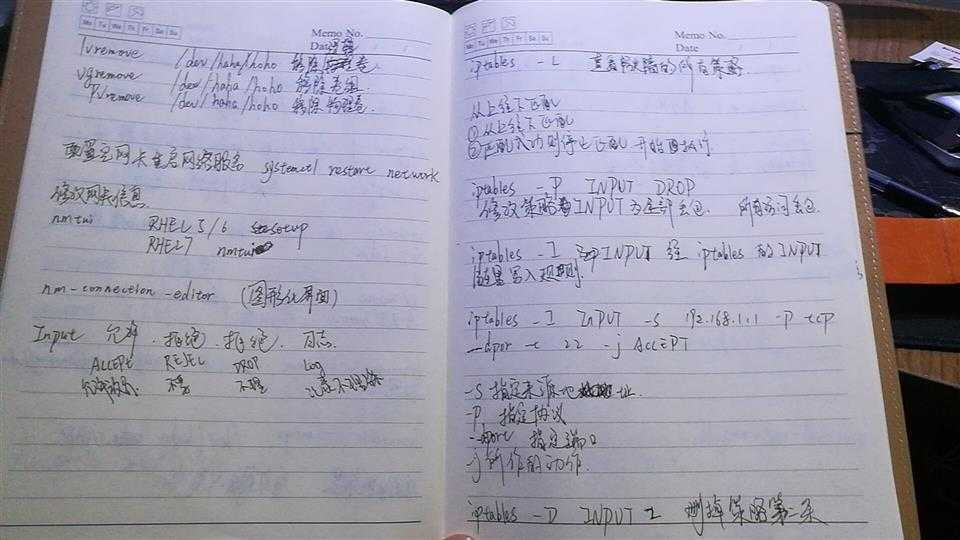 Memo No.
Mo Tu We Th Fr Sa Su
Date
lvremove /dev/haha/hoho 移除 卷
vgremove /dev/haha/hoho 移除卷组.
pvremove /dev/haha/hoho 移除物理卷
配置完网卡重启网络服务 systemctl restart network
修改网卡信息
nmtui RHEL 5/6 setup
RHEL7 nmtui
nm-connection-editor (图形化界面)
Input 允许. 拒绝. 拒绝. 日志.
ACCEPT REJEL DROP Log
不理
Memo No.
Mo Tu We Th Fr Sa Su
Date
iptables -L 查看 的所有策略.
从上往下匹配
①从上往下匹配
②匹配成功则停止匹配 开始 执行
iptables -P INPUT DROP
修改策略 INPUT为全部丢包. 所有访问丢包.
iptables -I INPUT 给 iptables 的 INPUT
链里写入规则.
iptables -I INPUT -s 192.168.1.1 -p tcp
--dpor-t 22 -j ACCEPT
-s 指定来源地址.
-p 指定协议
--dport 指定端口
-j 所作的动作.
iptables -D INPUT 2 删掉策略第二条